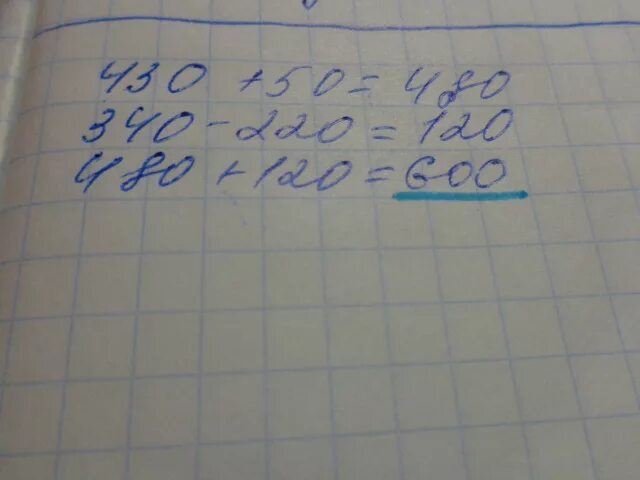 430 + 50 = 480
340 - 220 = 120
480 + 120 = 600